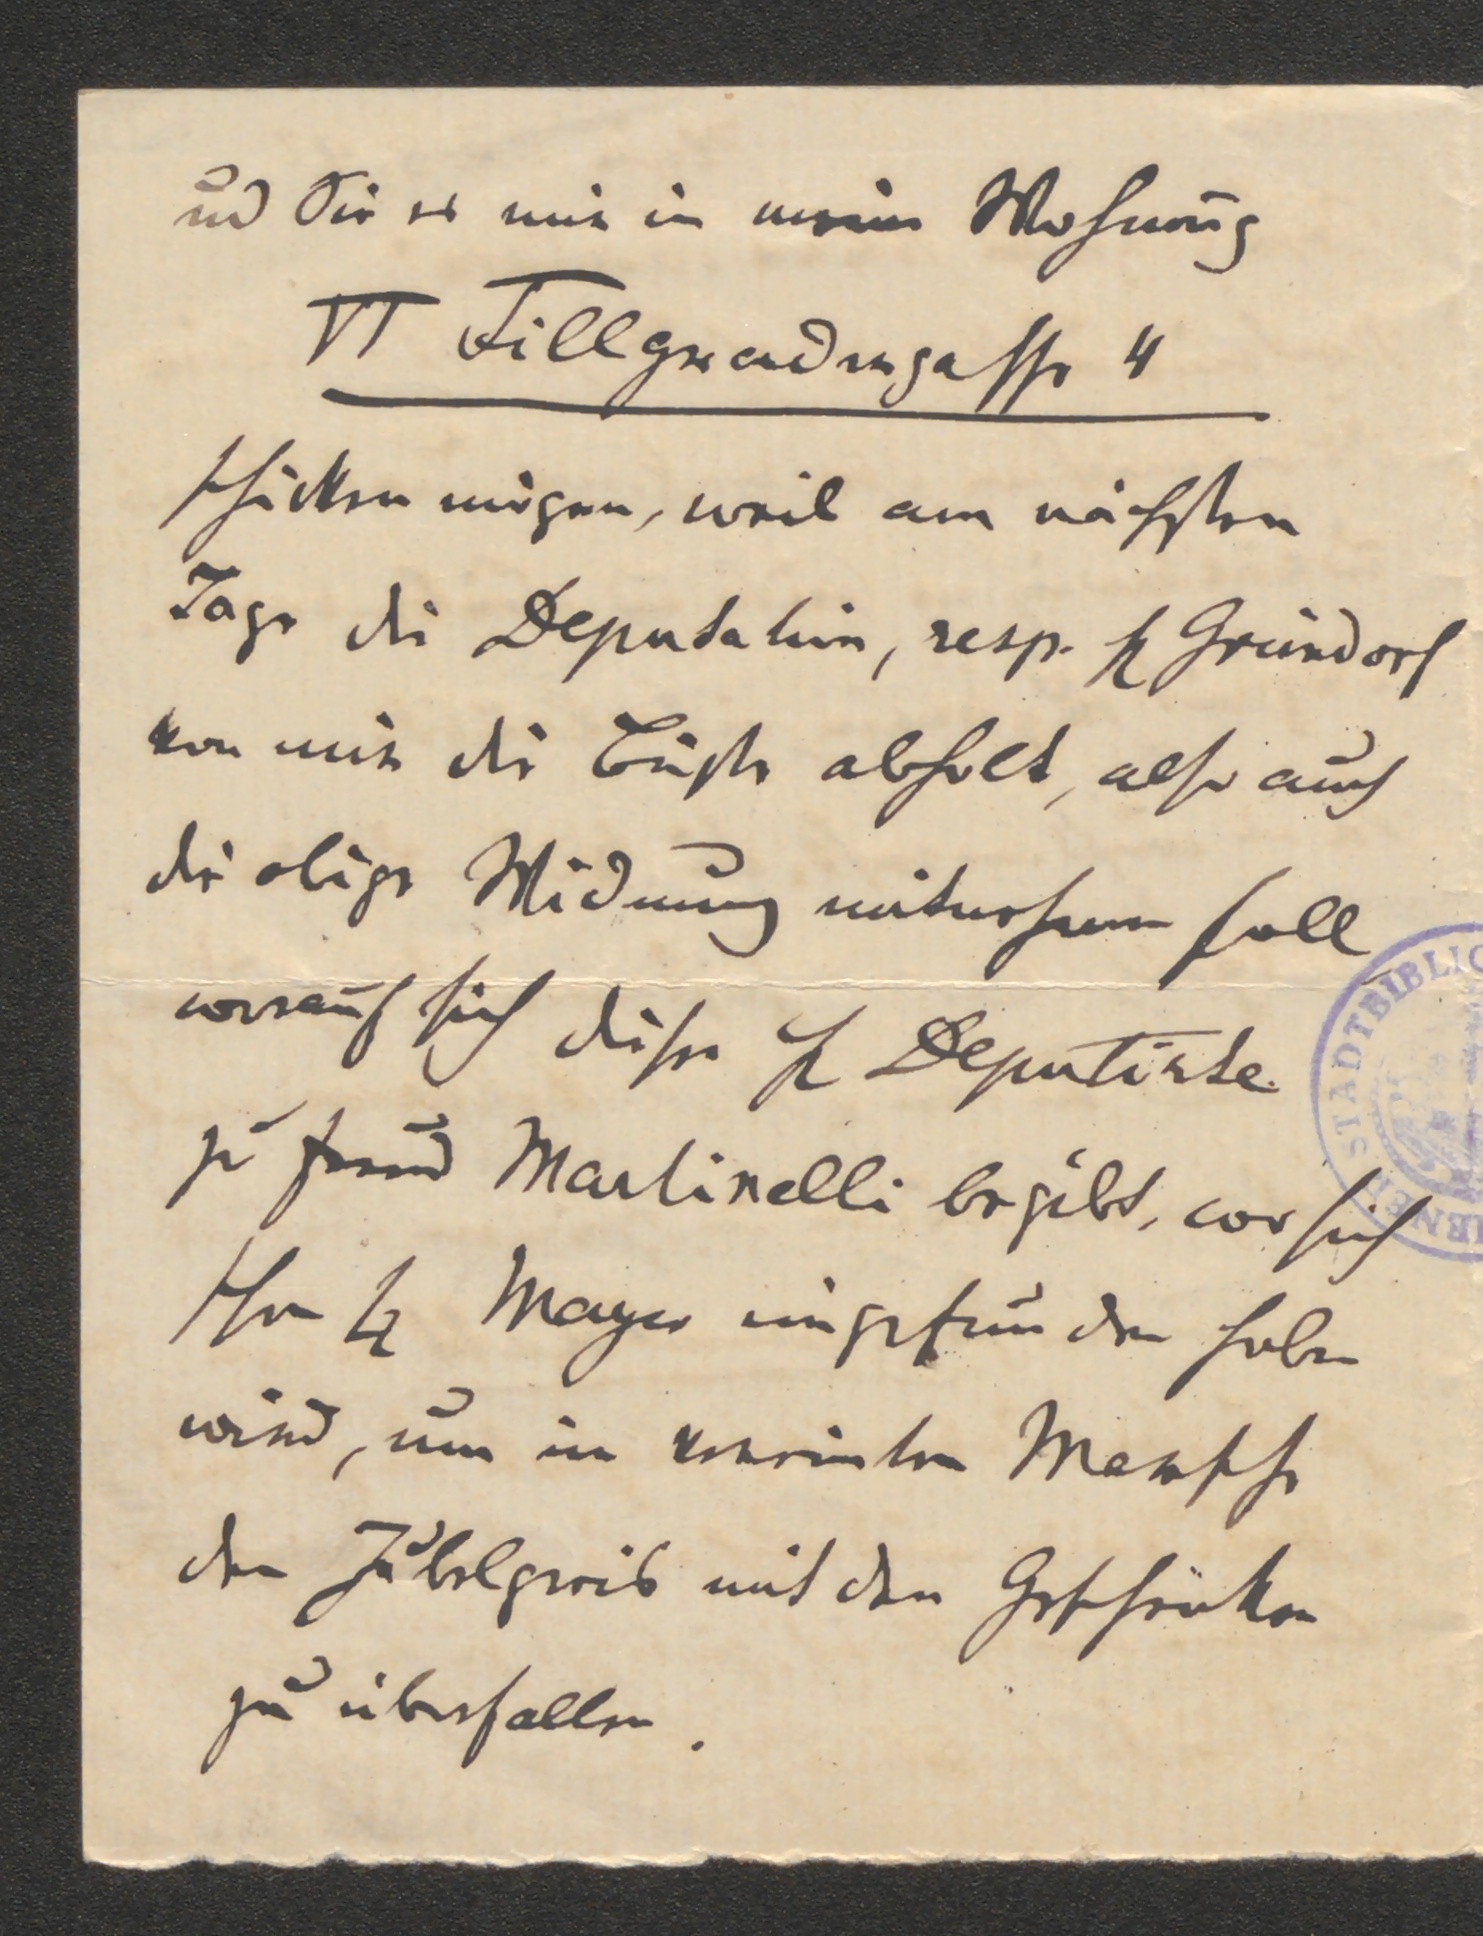 und Sie es mir in meine Wohnung
VI Fillgradergasse 4
schicken mögen, weil am nächsten
Tage die Deputation, resp. H Gründorf
von mir die Büste abholt, also auch
die obige Widmung mitnehmen soll
worauf sich dieser H Deputirte
zu Freund Martinelli begibt, wo sich
schon H Mayer eingefunden haben
wird, um in vereinten Marsche
den Jubelgreis mit den Geschenken
zu überfallen.
STADTBIBLIO